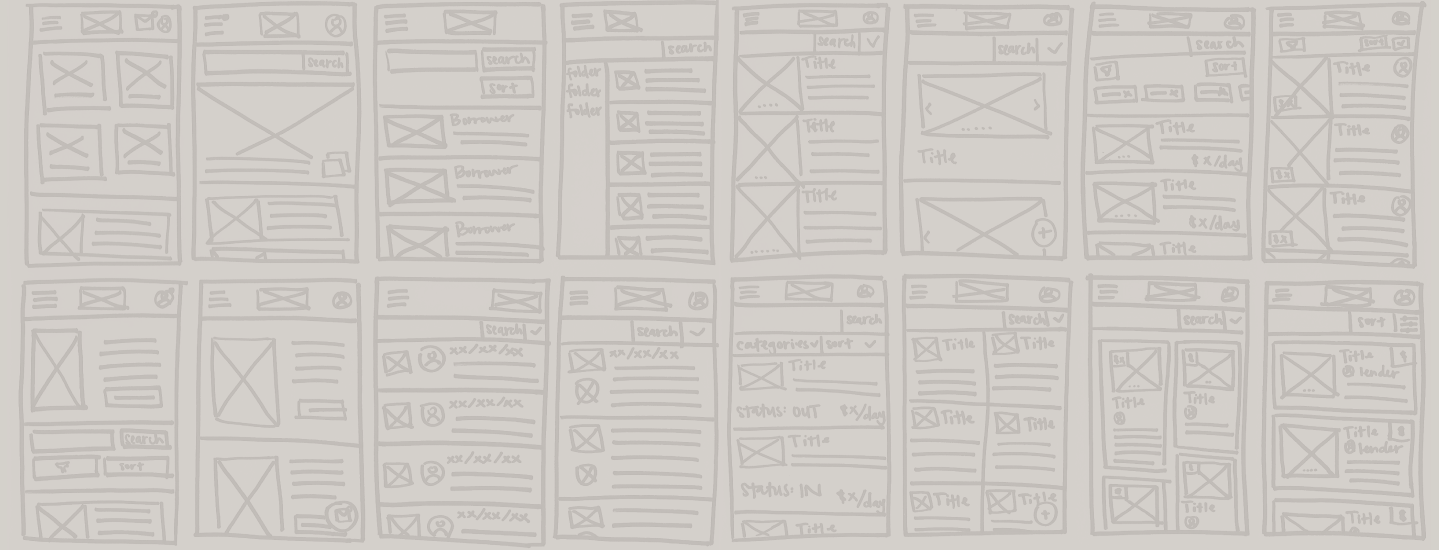 search
search
sort
Borrower
Borrower
Borrower
search
folder
folder
folder
search
Title
Title
Title
search
Title
search
sort
Title
$x/day
Title
$x/day
Title
sort
Title
$x
Title
$x
Title
$x
search
sort
search
xx/xx/xx
xx/xx/xx
xx/xx/xx
xx/xx/xx
search
xx/xx/xx
search
categories sort
Title
status: OUT $x/day
Title
status: IN $x/day
Title
search
Title Title
Title Title
Title Title
search
$x $
Title Title
$
Title
sort
Title $
lender
Title $
lender
Title $